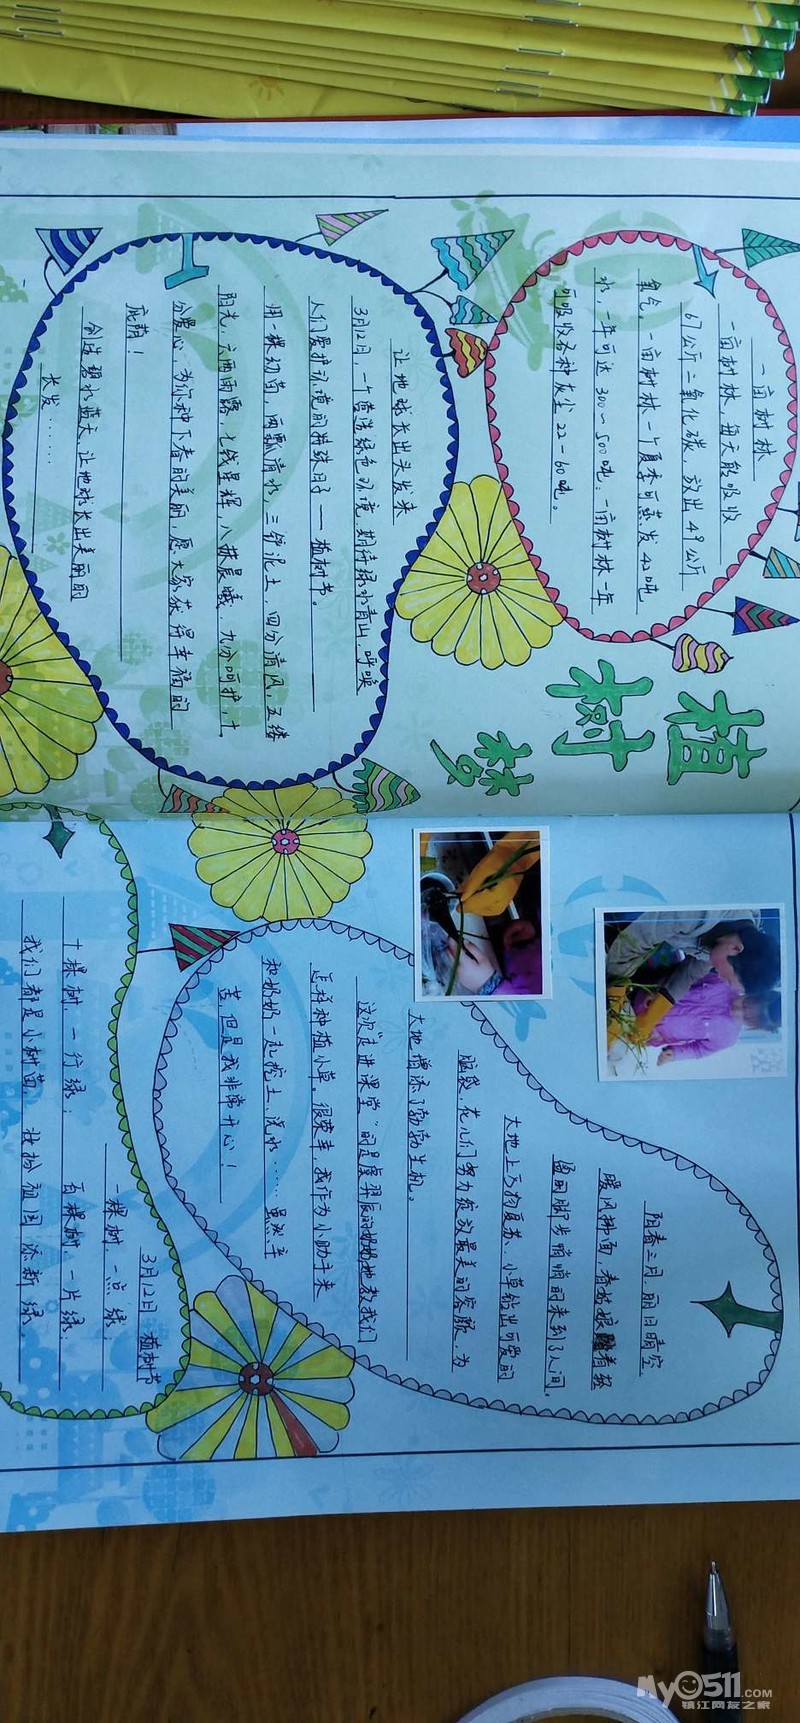 植树梦
一亩树林
一亩树林,每天能吸收
67公斤二氧化碳,放出49公斤
氧气,一亩树林一个夏季可蒸发42吨
水,一年可达300~500吨;一亩树林一年
可吸收各种灰尘22-60吨。
让地球长出头发来
3月12日,一个营造绿色环境,期待绿水青山,呼唤
人们爱护环境的特殊日子——植树节。
用一棵幼苗,两瓢清水,三锹泥土,四分清风,五缕
阳光,六两雨露,七钱星辉,八抹晨曦,九分呵护,十
分爱心,为你种下春的美丽,愿大家获得幸福的
庇荫!
创造碧水蓝天,让地球长出美丽的
长发……
阳春三月,丽日晴空
暖风拂面,春姑娘踏着轻
盈的脚步悄悄的来到了人间。
大地上万物复苏,小草钻出可爱的
脑袋,花儿们努力绽放最美的容颜,为
大地增添了勃勃生机。
这次“走进课堂”的是虞羿辰的奶奶,她教我们
怎样种植小草。很荣幸,我作为小助手来
和奶奶一起挖土、浇水……虽然辛
苦,但是我非常开心!
3月12日 植树节
一棵树,一点绿;
十棵树,一行绿;百棵树,一片绿;
我们都是小树苗,扮祖国添新绿。
My0511.COM
镇江网友之家